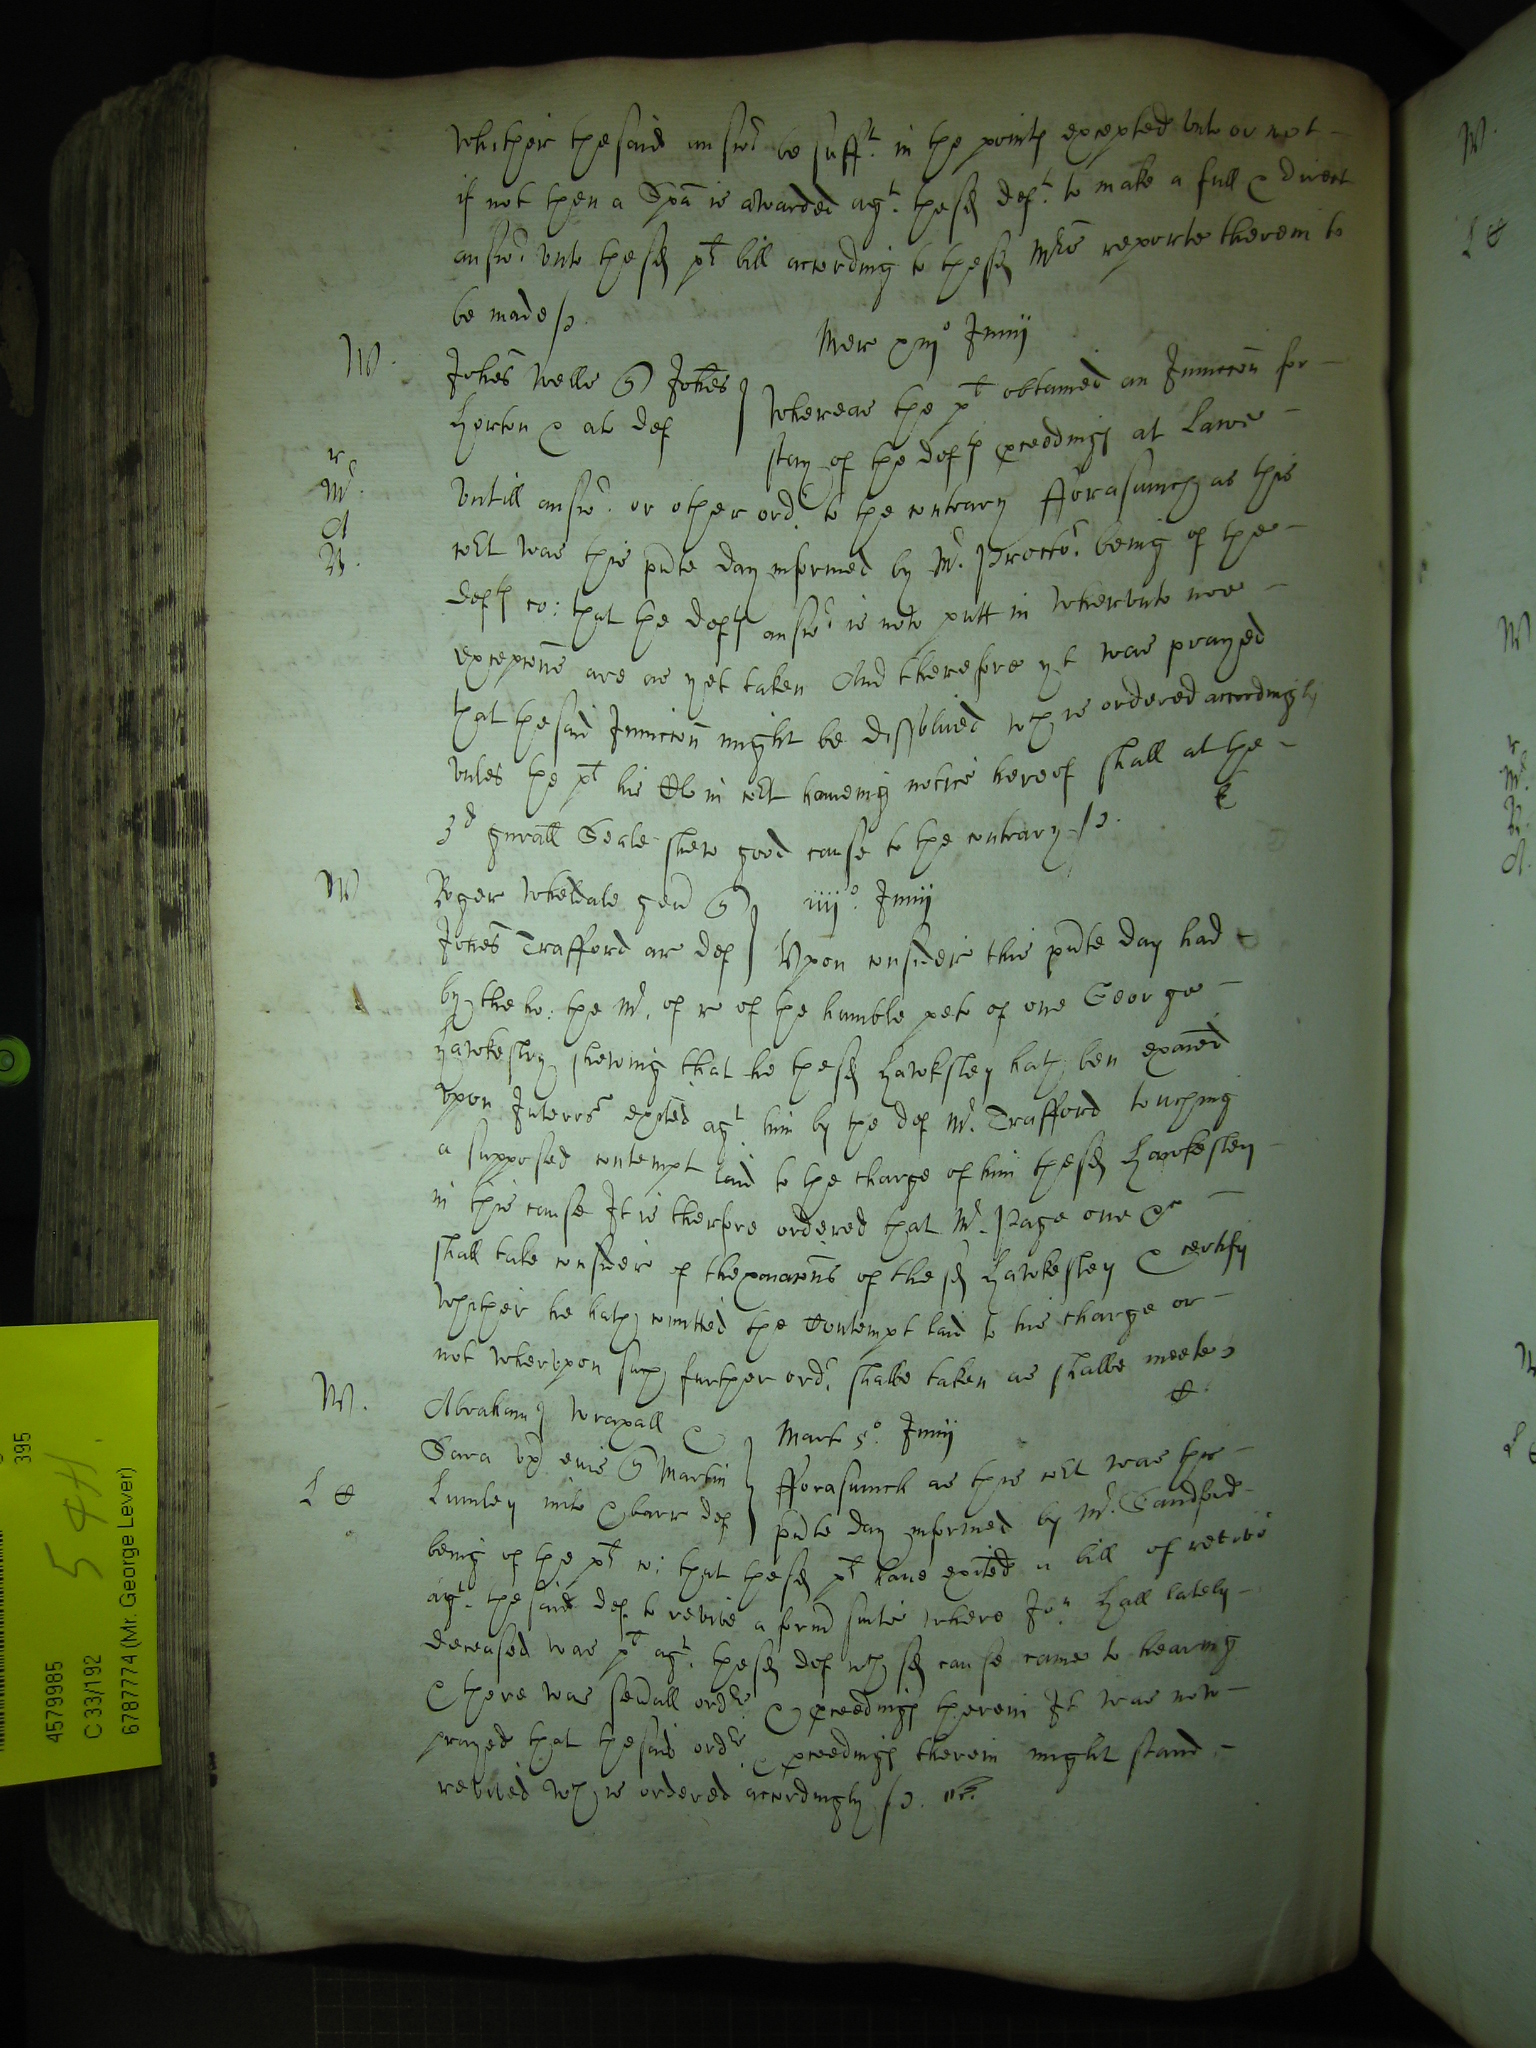 whither the said answr be sufft. in the points excepted unto or not
if not then a Spa is awarded agt. the sd deft. to make a full & direct
answr. unto the sd plt bill according to the sd Mrs reporte therein to
be made /.
W.
Mer xiijo Junij
Johes Wells Johes
Horton & als def
Whereas the plt obtained an Juncon for
stay of the defts pceedings at Lawe
r
Mr.
A
B.
Untill answr. or other ordr. to the contrary fforasmuch as this
cort was this pnte day informed by Mr. Proctor. being of the
defts co: that the defts answr is now putt in wherunto noe
excepcons are as yet taken And therefore yt was prayed
that the said Juncon might be dissolved wch is ordered accordingly
unles the plt his Clo in cort haveing notice hereof shall at the
3d gnrall Seale shew good cause to the contrary /.
W
Roger Wheldale gen
iiijo. Junij
Johes Trafford ar def
Upon consider this pnte day had
by the ho: the Mr. of r of the humble peto of one George
Hawkesley shewing that he the sd Hawksley hath ben exaied
upon Interrs exited agt. him by the def Mr. Trafford touching
a supposed contempt laid to the charge of him the sd Hawkesley
in this cause It is therfore ordered that Mr. Page one &c
shall take consider of thexaacons of the sd Hawkesley & certify
whither he hath comitted the Contempt laid to his charge or
not wherupon such further ordr. shalbe taken as shalbe meete
W.
Abraham Wraxall &
Marti 5o. Junij
Sara ux eius Martin
fforasmuch as this cort was this
L &
Lumley milo & barr def
pnte day informed by Mr. Sandford
being of the plt co: that the sd plt have exited a bill of revivo
agt. the said def to revive a formr suite where Jon Hall lately
deceased was plt agt. the sd def wch sd cause came to hearing
& there was sevall ordrs. & pceedings therein It was now
prayed that the said ordrs & pceedings therein might stand
revived wch is ordered accordingly /.
4579985
C 33/192
6787774 (Mr. George Lever)
395
544.